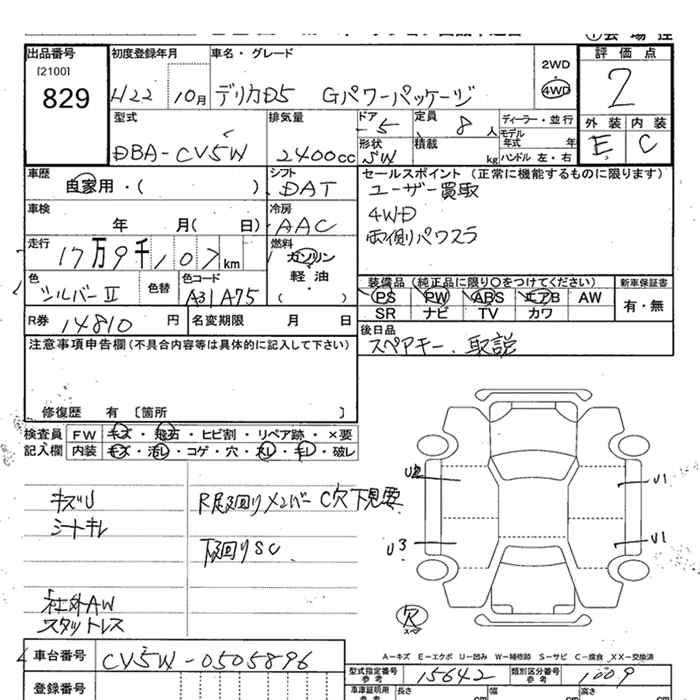 出品番号
[2100]
829
初度登録年月
H22 10月
車名・グレード
デリカD5 Gパワーパッケージ
2WD
4WD
評価点
2
外装 内装
E C
型式
DBA-CV5W
排気量
2400cc
ドア
5
形状
SW
定員
8人
積載
kg
ディーラー・並行
モデル
年式 年
ハンドル 左・右
車歴
自家用・( )
シフト
DAT
車検
年 月( 日)
冷房
AAC
走行
17万9千107km
燃料
ガソリン
軽・油
( )
色
シルバーII
色替
色コード
A31 A75
セールスポイント (正常に機能するものに限ります)
ユーザー買取
4WD
両側パワスラ
装備品 (純正品に限り○をつけてください)
PS PW ABS エアB AW
SR ナビ TV カワ
新車保証書
有・無
R券 14810円
名変期限 月 日
後日品
スペアキー、取説
注意事項申告欄(不具合内容等は具体的に記入して下さい)
修復歴 有 [箇所 ]
検査員
記入欄
FW キズ・飛石・ヒビ割・リペア跡・×要
内装 キズ・汚レ・コゲ・穴・スレ・キレ・破レ
キズU
シートキレ
社外AW
スタットレス
R足廻りメンバーC穴下見要
下廻りSC
U2
U3
U1
U1
欠
スペア
A-キズ E-エクボ U-凹み W-補修跡 S-サビ C-腐食 XX-交換済
車台番号
CV5W-0505896
登録番号
型式指定番号
参考
15642
類別区分番号
参考
1009
車庫証明用
参考
長さ cm
幅 cm
高さ cm